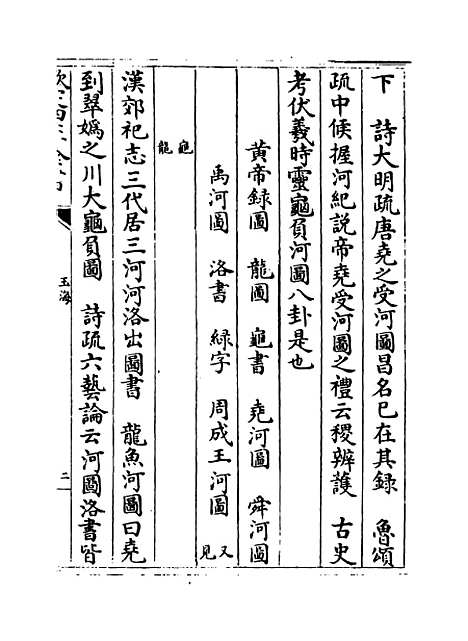 下　詩大明疏唐堯之受河圖昌名已在其録　魯頌
疏中候握河紀説帝堯受河圖之禮云稷辨護　古史
考伏羲時靈龜負河圖八卦是也
黄帝録圖　龍圖　龜書　堯河圖　舜河圖
禹河圖　洛書　緑字　周成王河圖　又見
龜龍
漢郊祀志三代居三河河洛出圖書　龍魚河圖曰堯
到翠嬀之川大龜負圖　詩疏六藝論云河圖洛書皆
玉海
二